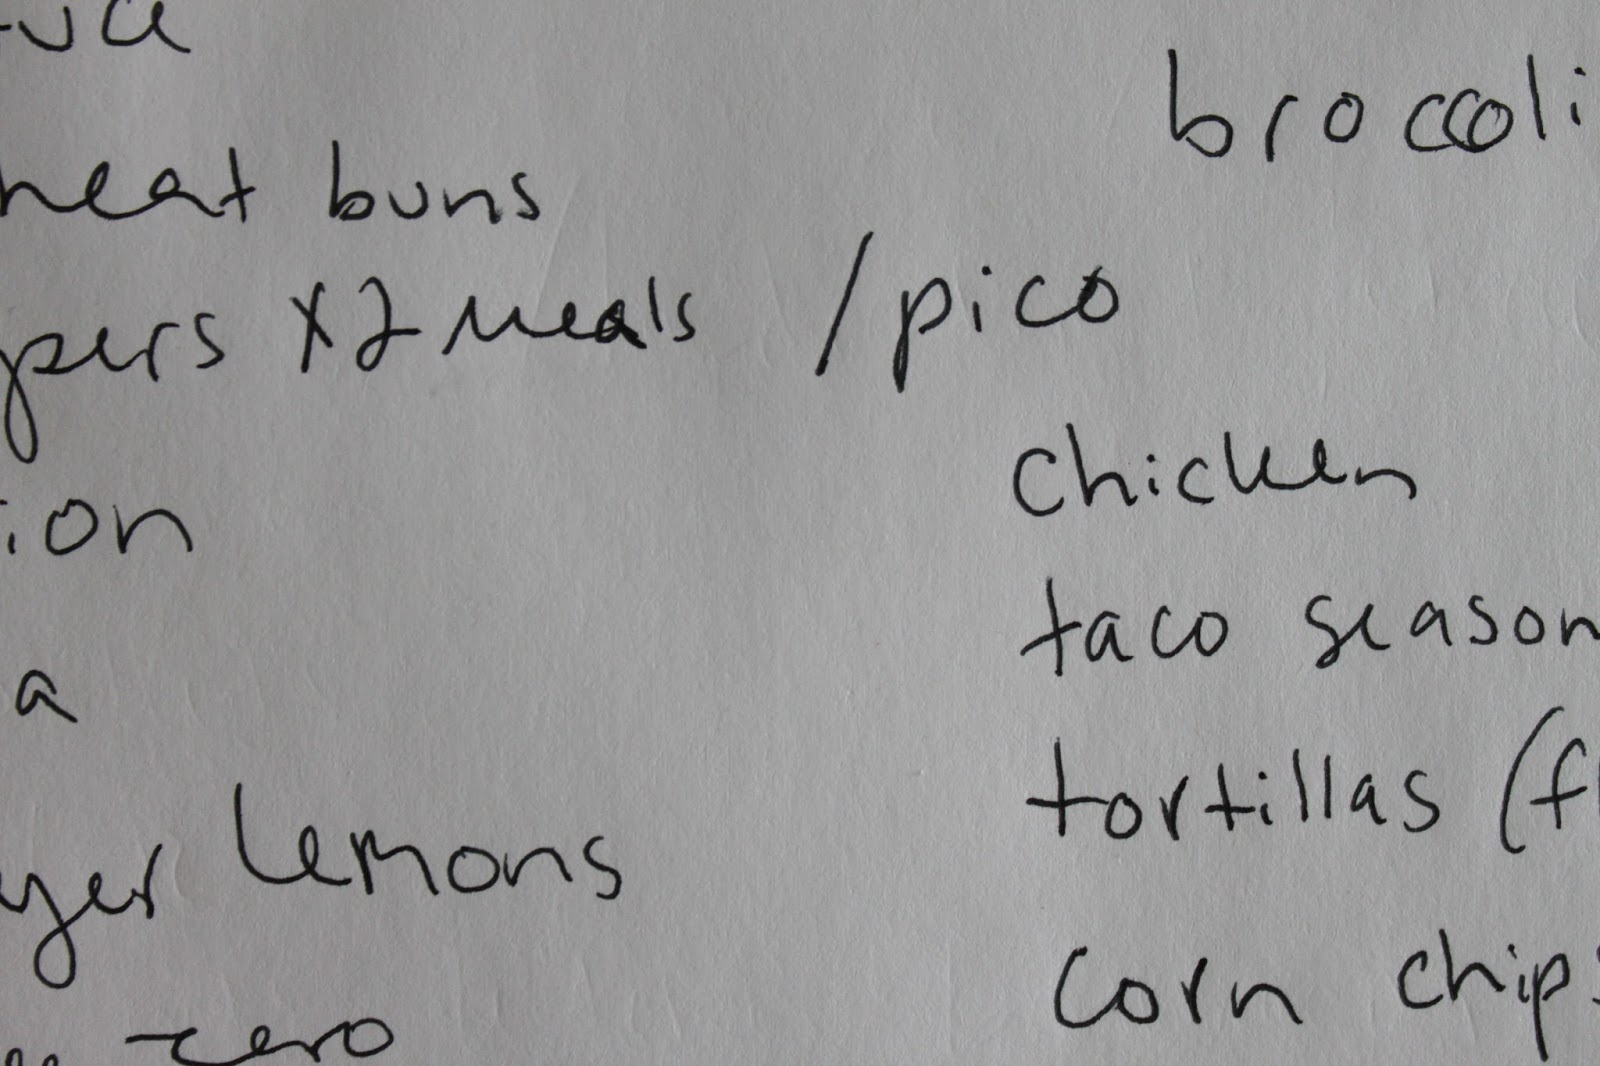 heat buns
pers x2 meals / pico
ion
a
yer lemons
zero
broccoli
chicken
taco season
tortillas (fl
corn chips